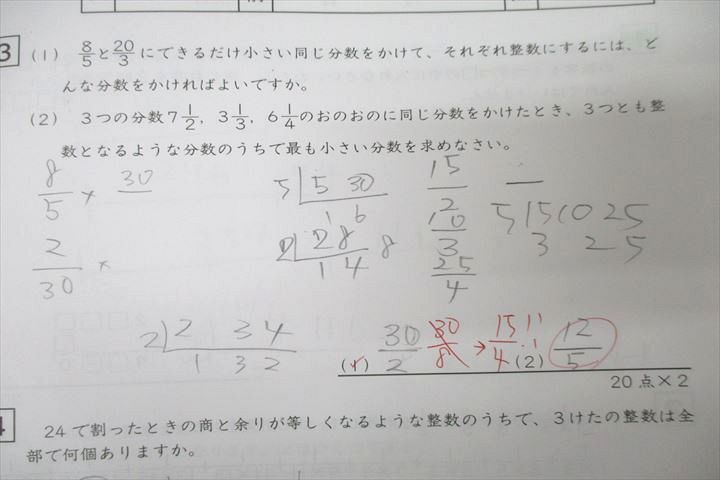 3 (1) 8/5と20/3にできるだけ小さい同じ分数をかけて、それぞれ整数にするには、ど
んな分数をかければよいですか。
(2) 3つの分数7 1/2, 3 1/3, 6 1/4のおのおのに同じ分数をかけたとき、3つとも整
数となるような分数のうちで最も小さい分数を求めなさい。
8/5 × 30
5 5 30
1 6
15/2
2/30 ×
2 2 8 8
1 4
10/3
5 15 10 25
3 2 5
25/4
2 2 3 4
1 3 2
(1) 30/2 30/8 → 15/4 (2) 12/5
20点×2
4 24で割ったときの商と余りが等しくなるような整数のうちで、3けたの整数は全
部で何個ありますか。